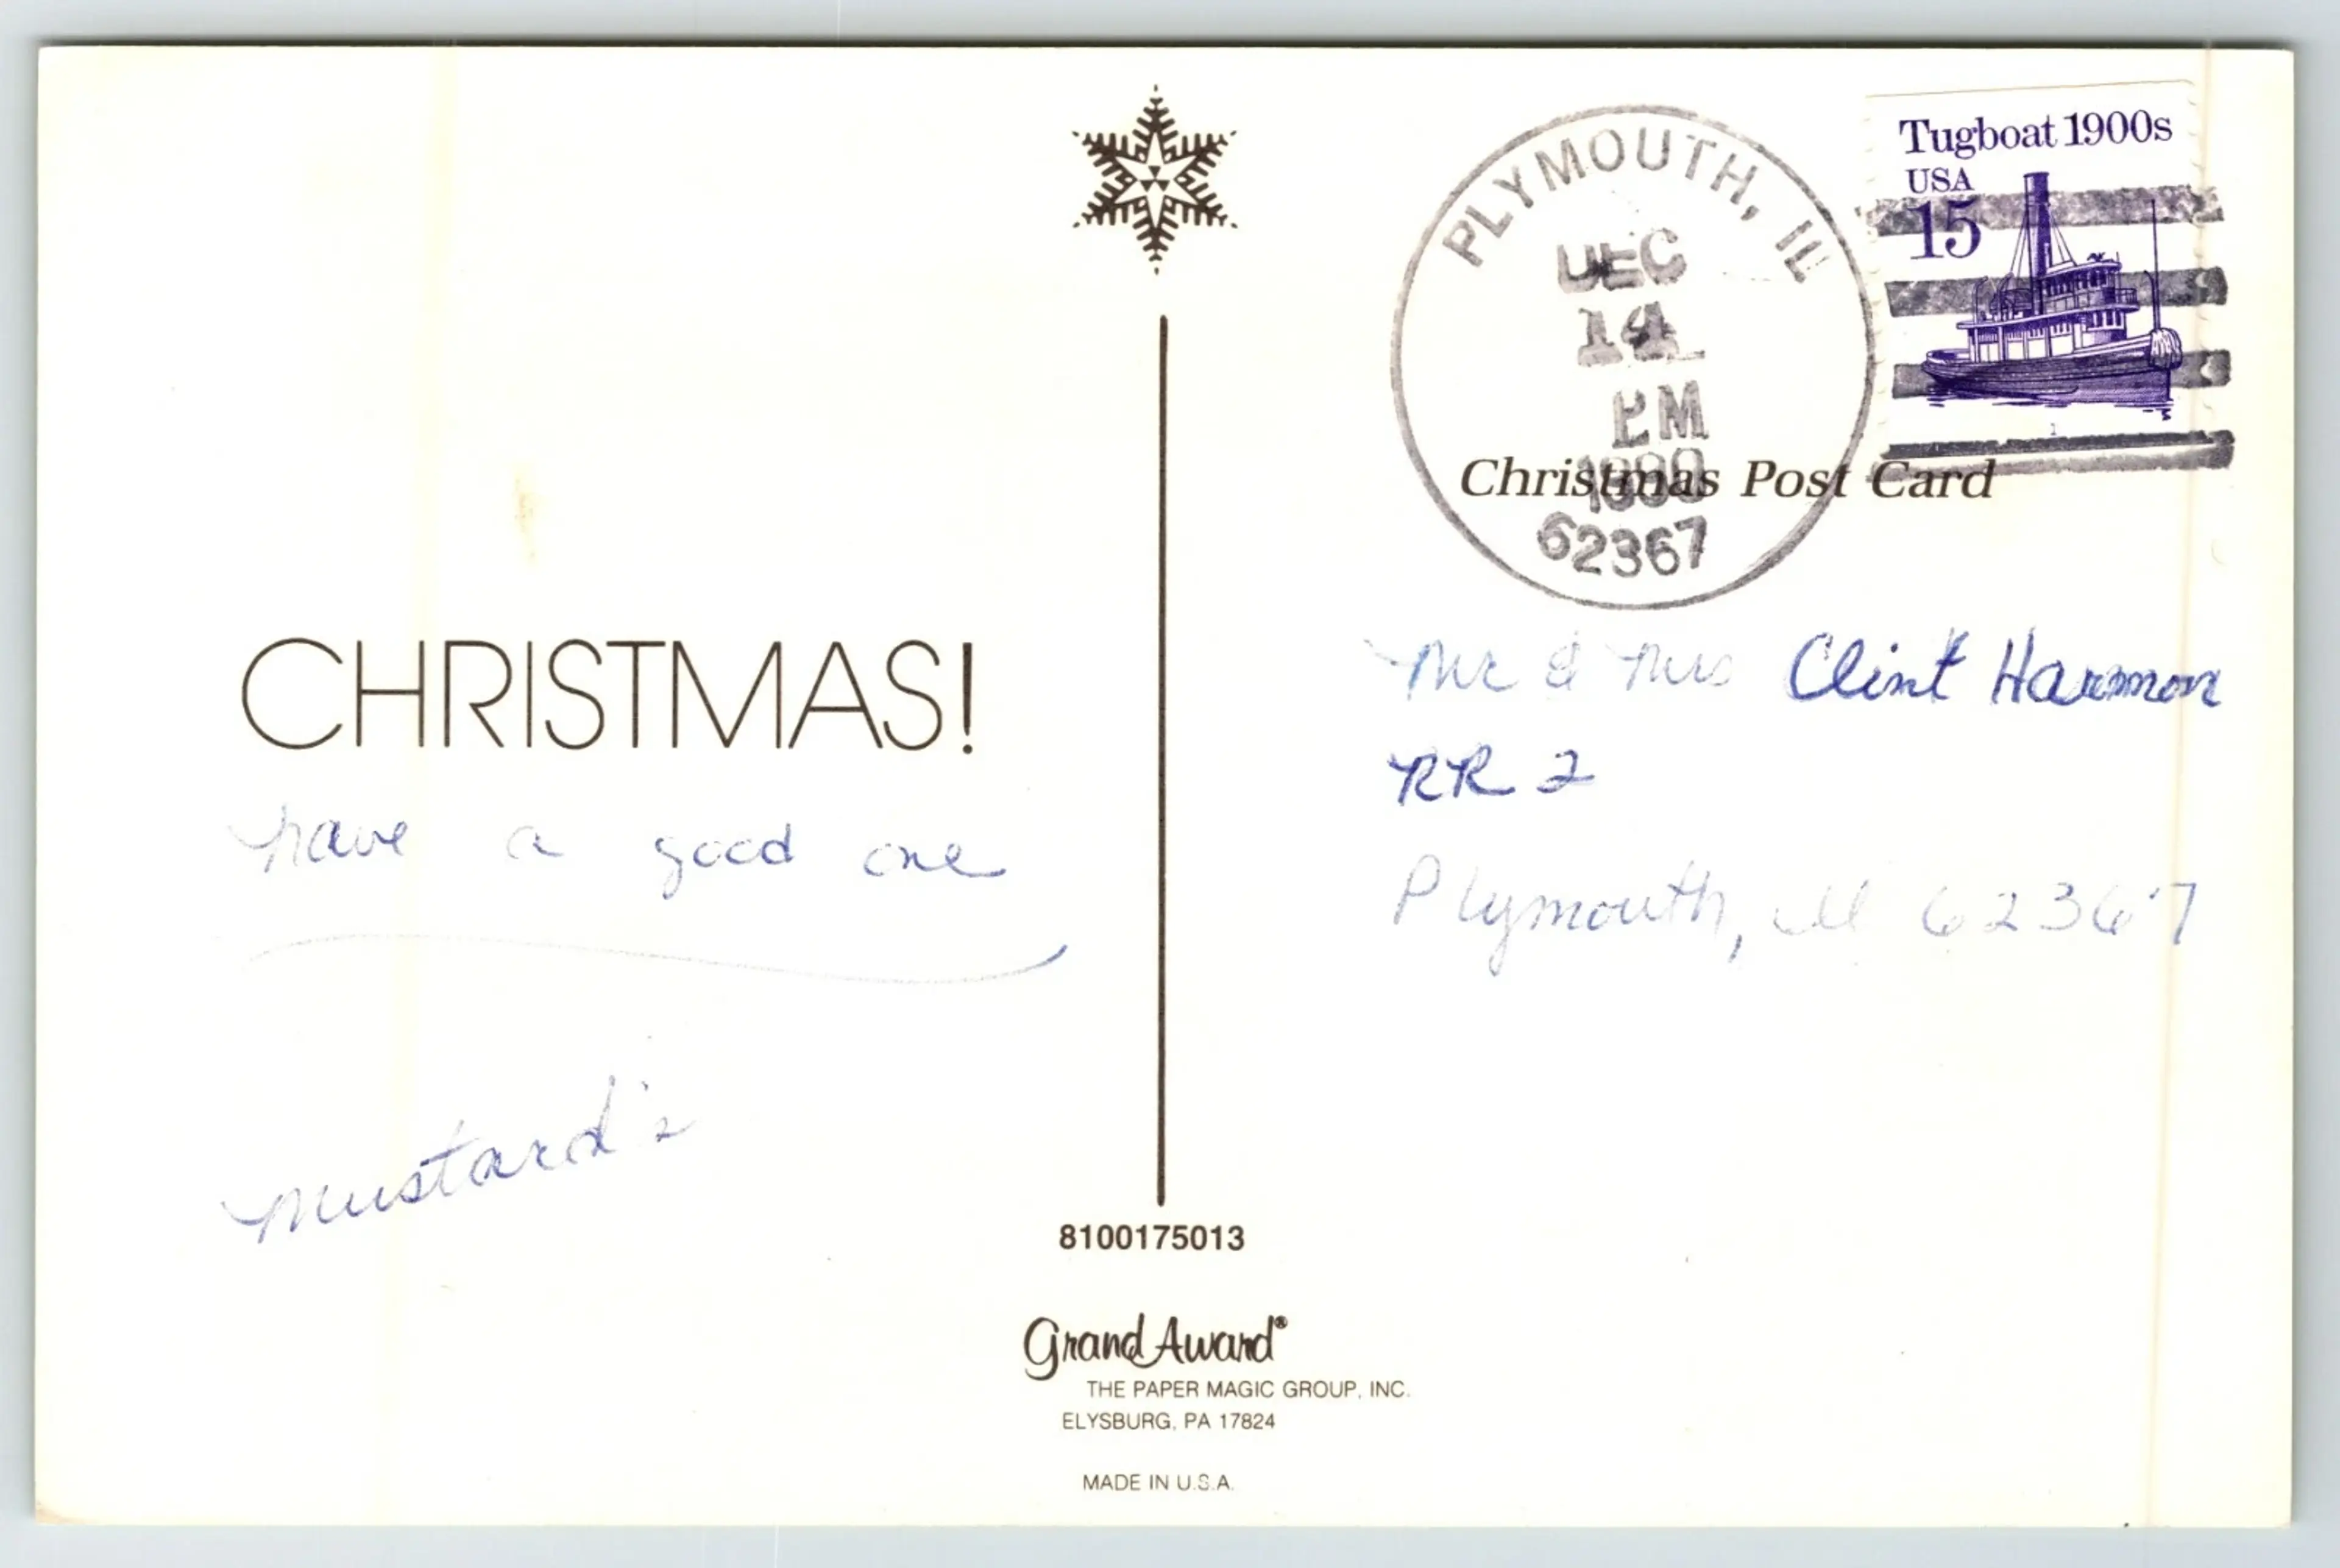 CHRISTMAS!
have a good one
Mustard's
PLYMOUTH, IL
DEC
14
PM
1990
62367
Tugboat 1900s
USA
15
1
Christmas Post Card
Mr & Mrs Clint Harmon
RR 2
Plymouth, Ill 62367
8100175013
Grand Award®
THE PAPER MAGIC GROUP, INC.
ELYSBURG, PA 17824
MADE IN U.S.A.